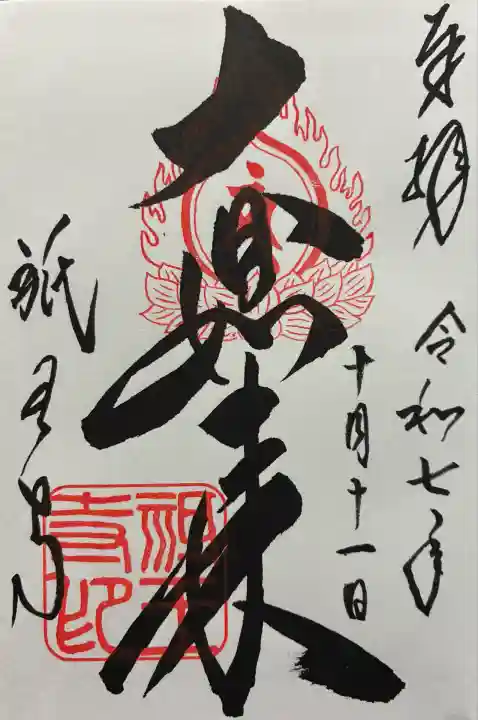 奉拝
令和七年
十月十一日
大日如来
祇王寺
祇王寺印